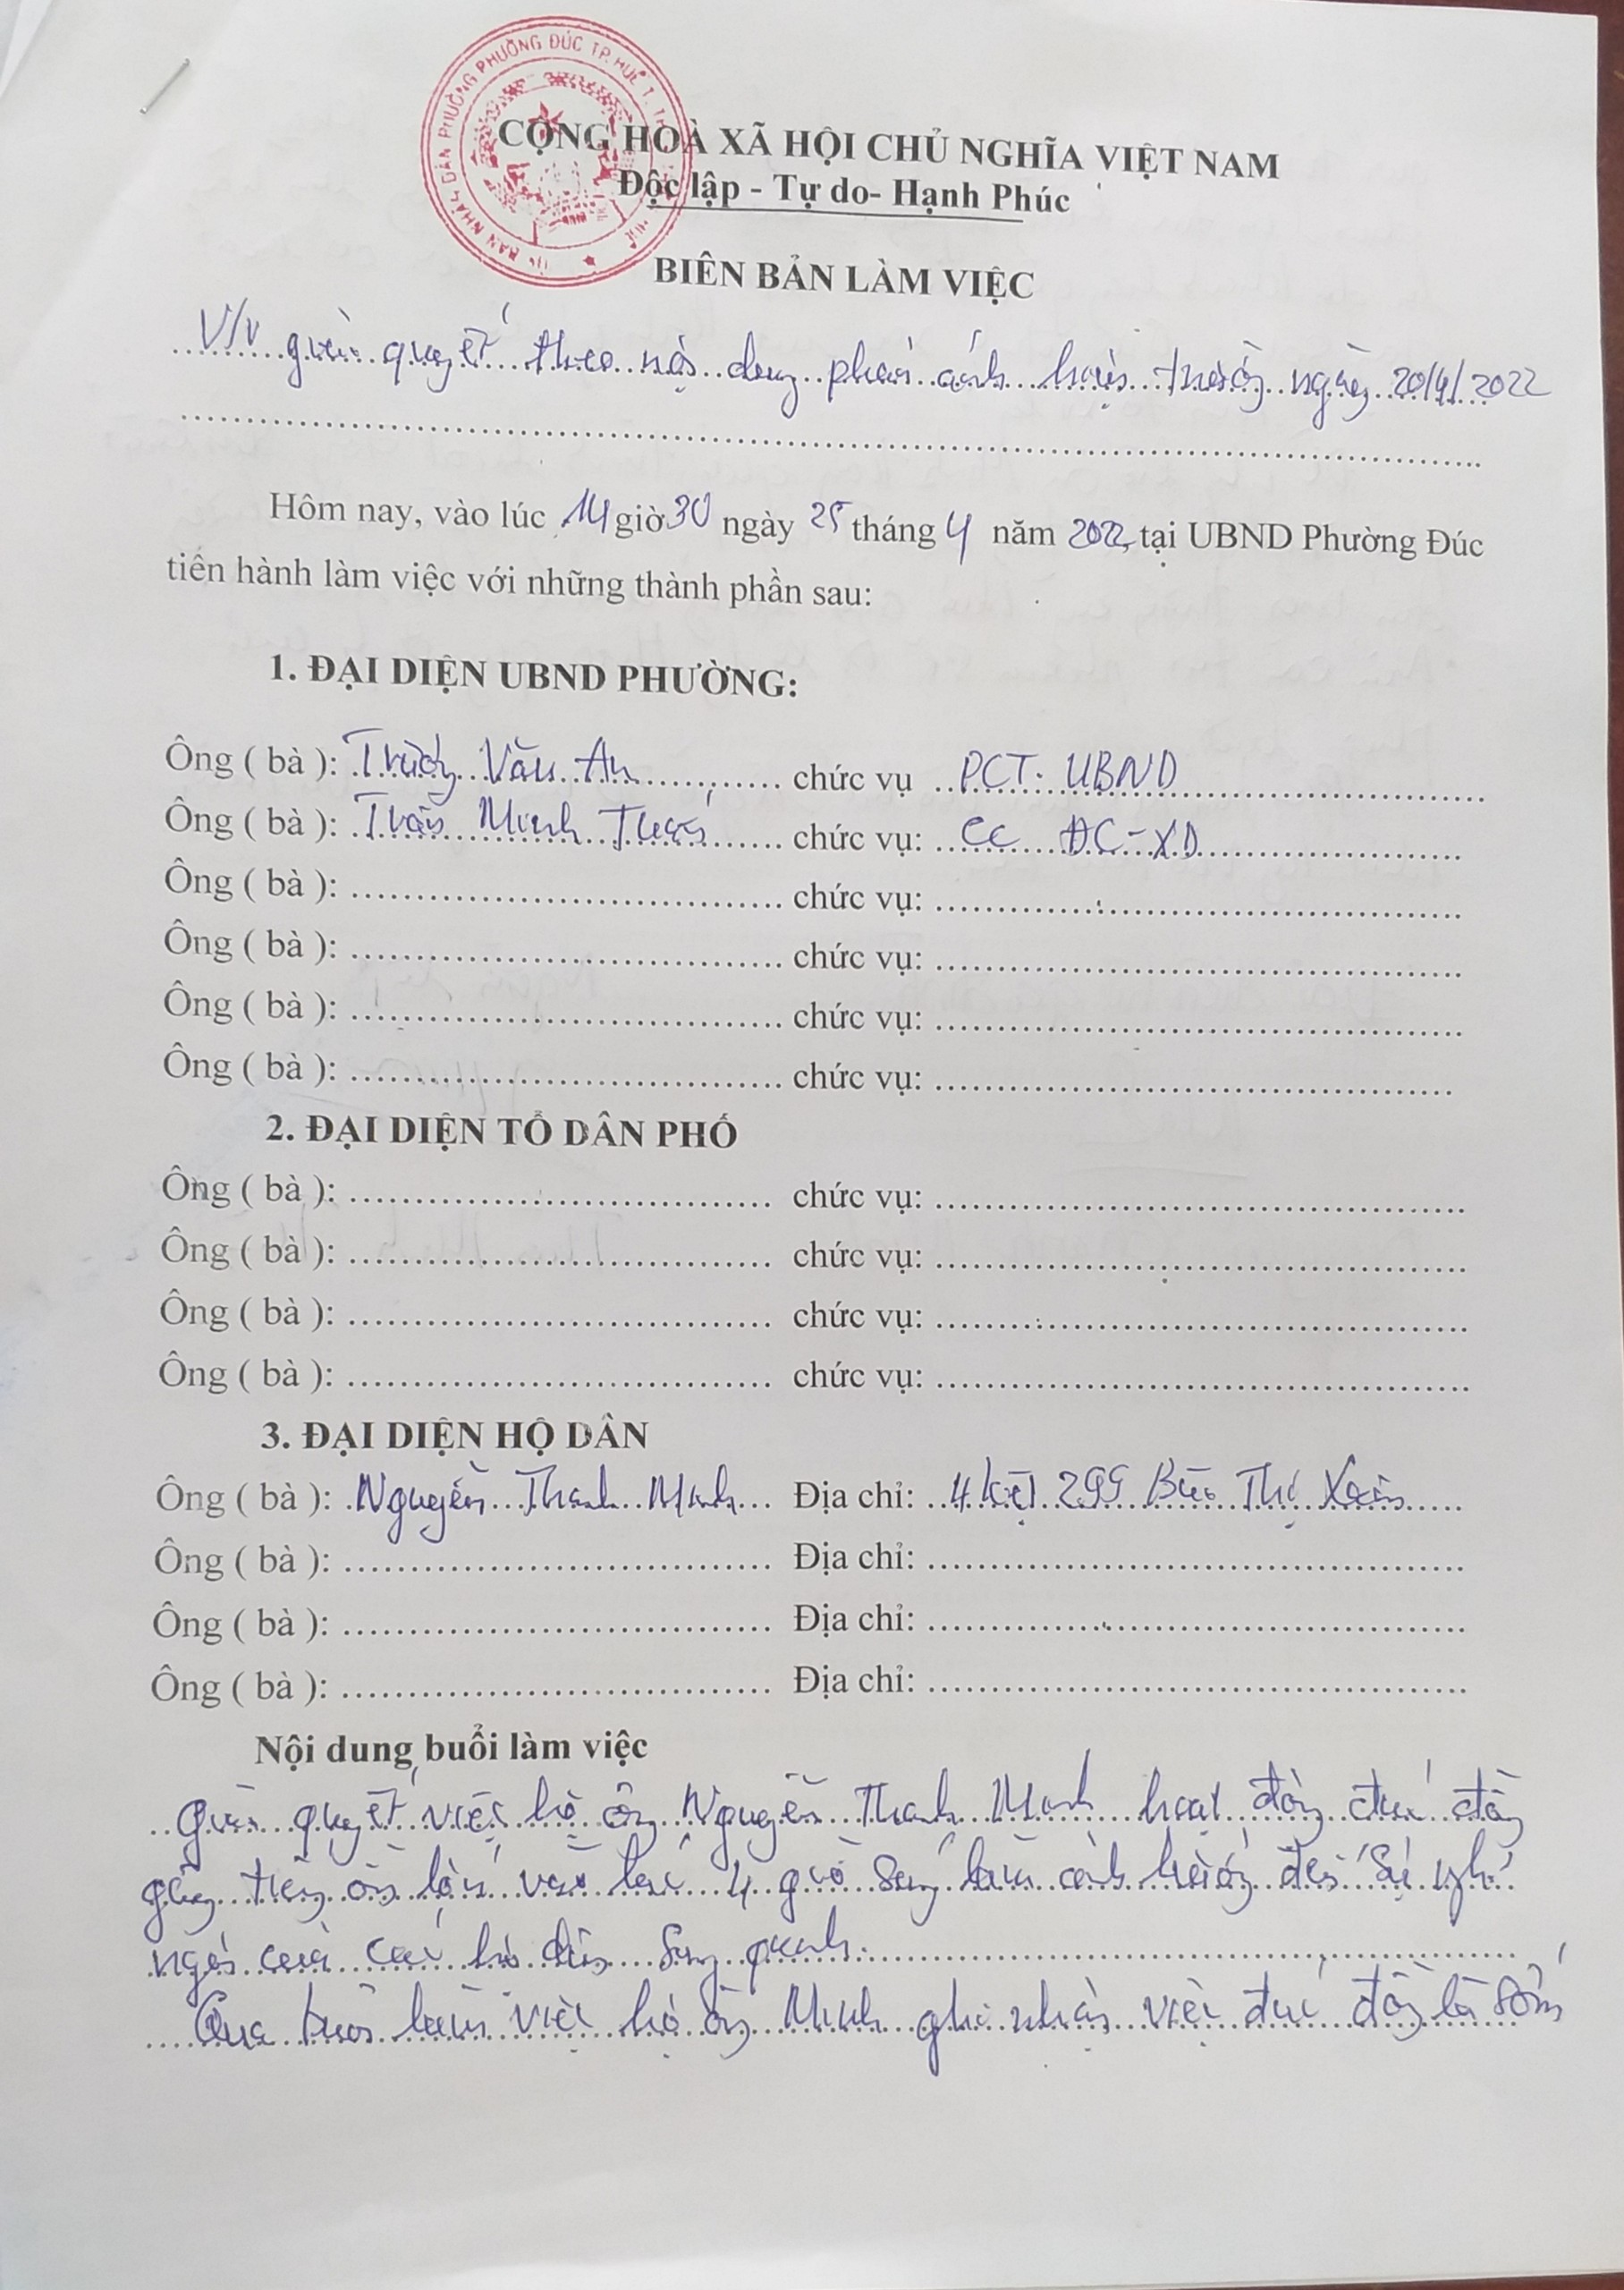 ỦY BAN NHÂN DÂN PHƯỜNG PHƯỜNG ĐÚC TP. HUẾ T. 
CỘNG HOÀ XÃ HỘI CHỦ NGHĨA VIỆT NAM
Độc lập - Tự do- Hạnh Phúc
BIÊN BẢN LÀM VIỆC
V/v giải quyết theo nội dung phản ánh hiện trường ngày 20/4/2022
Hôm nay, vào lúc 14 giờ 30 ngày 25 tháng 4 năm 2022, tại UBND Phường Đúc
tiến hành làm việc với những thành phần sau:
1. ĐẠI DIỆN UBND PHƯỜNG:
Ông ( bà ): Trương Văn An chức vụ PCT. UBND
Ông ( bà ): Trần Minh chức vụ: CC ĐC-XD
Ông ( bà ): chức vụ:
Ông ( bà ): chức vụ:
Ông ( bà ): chức vụ:
Ông ( bà ): chức vụ:
2. ĐẠI DIỆN TỔ DÂN PHỐ
Ông ( bà ): chức vụ:
Ông ( bà ): chức vụ:
Ông ( bà ): chức vụ:
Ông ( bà ): chức vụ:
3. ĐẠI DIỆN HỘ DÂN
Ông ( bà ): Nguyễn Thanh Minh Địa chỉ: 4 kiệt 299 Bùi Thị Xuân
Ông ( bà ): Địa chỉ:
Ông ( bà ): Địa chỉ:
Ông ( bà ): Địa chỉ:
Nội dung buổi làm việc
Giải quyết việc hộ ông Nguyễn Thanh Minh hoạt động đúc đồng
gây tiếng ồn lớn vào lúc 4 giờ sáng làm ảnh hưởng đến sự nghỉ
ngơi của các hộ dân xung quanh.
Qua buổi làm việc hộ ông Minh ghi nhận việc đúc đồng là sớm